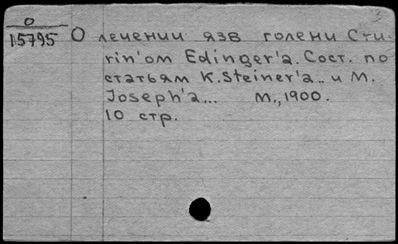 0
15795
О лечении язв голени Сти-
rin'ом Edinger'a. Сост. по
статьям K. Steiner'a.. и М.
Joseph'a... М., 1900.
10 стр.